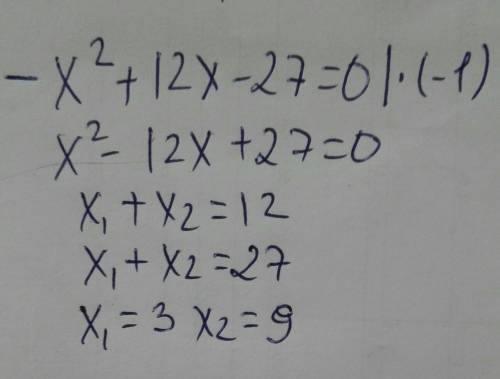 -x²+12x-27=0|·(-1)
x²-12x+27=0
x₁+x₂=12
x₁+x₂=27
x₁=3 x₂=9